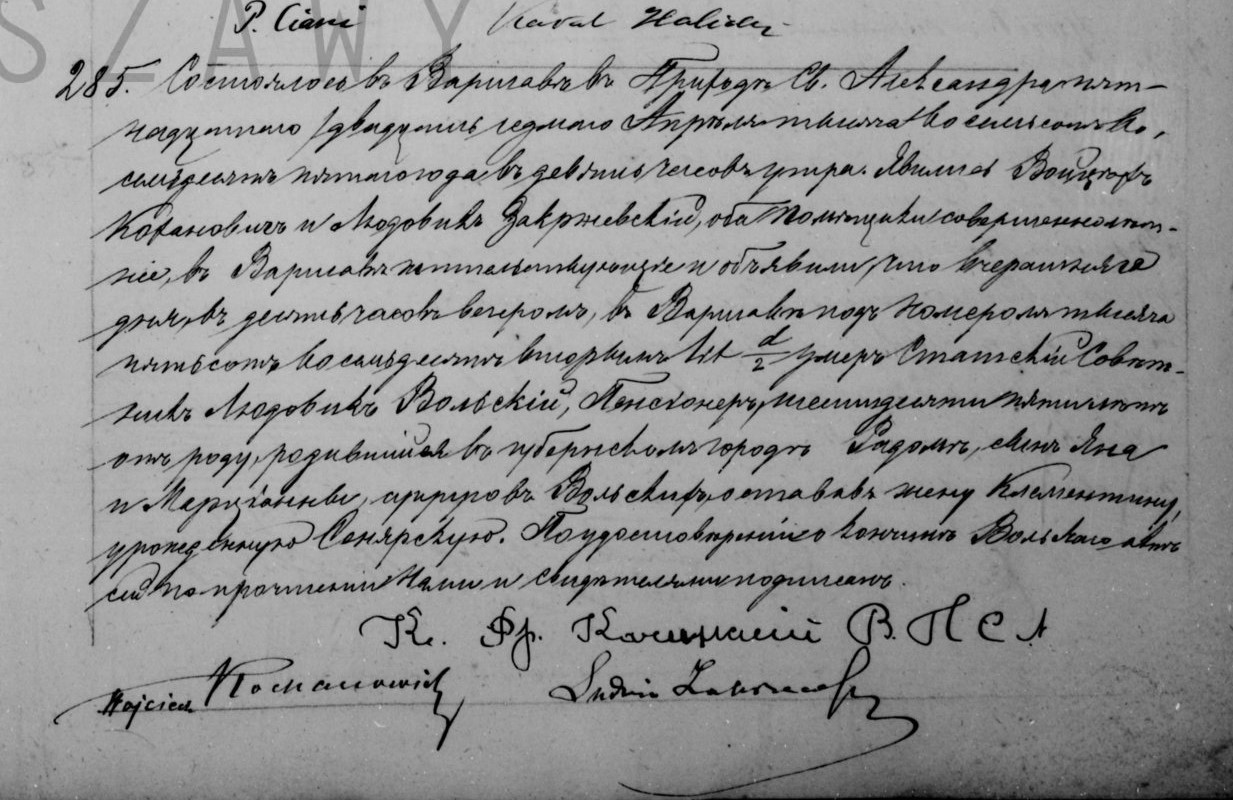 SZAWY
P. Ciani
285. Состоялось въ Варшавѣ въ Приходѣ Св. Александра пят-
надцатаго /двадцать седьмаго Апрѣля тысяча восемьсотъ во,
семьдесятъ пятаго года въ девять часовъ утра. Явились Войцѣхъ
Кохановичъ и Людовикъ Закржевскій, оба помѣщики совершеннолѣт-
ніе, въ Варшавѣ жительствующіе и объявили, что вчерашняго
дня, въ десять часовъ вечеромъ, въ Варшавѣ подъ номеромъ тысяча
пятьсотъ восемьдесятъ вторымъ lit d/2 умеръ Статскій Совѣт-
никъ Людовикъ Вольскій, Пенсіонеръ, шестидесяти пяти лѣтъ
отъ роду, родившійся въ губернскомъ городѣ Радомѣ, сынъ Яна
и Маріанны, супруговъ Вольскихъ, оставивъ жену Клементину,
урожденную Сенярскую. По удостовѣреніи о кончинѣ Вольскаго актъ
сей по прочтеніи Нами и свидѣтелями подписанъ.
Кс. Фр. В. П С А
Wojciech Kochanowicz
Ludwik